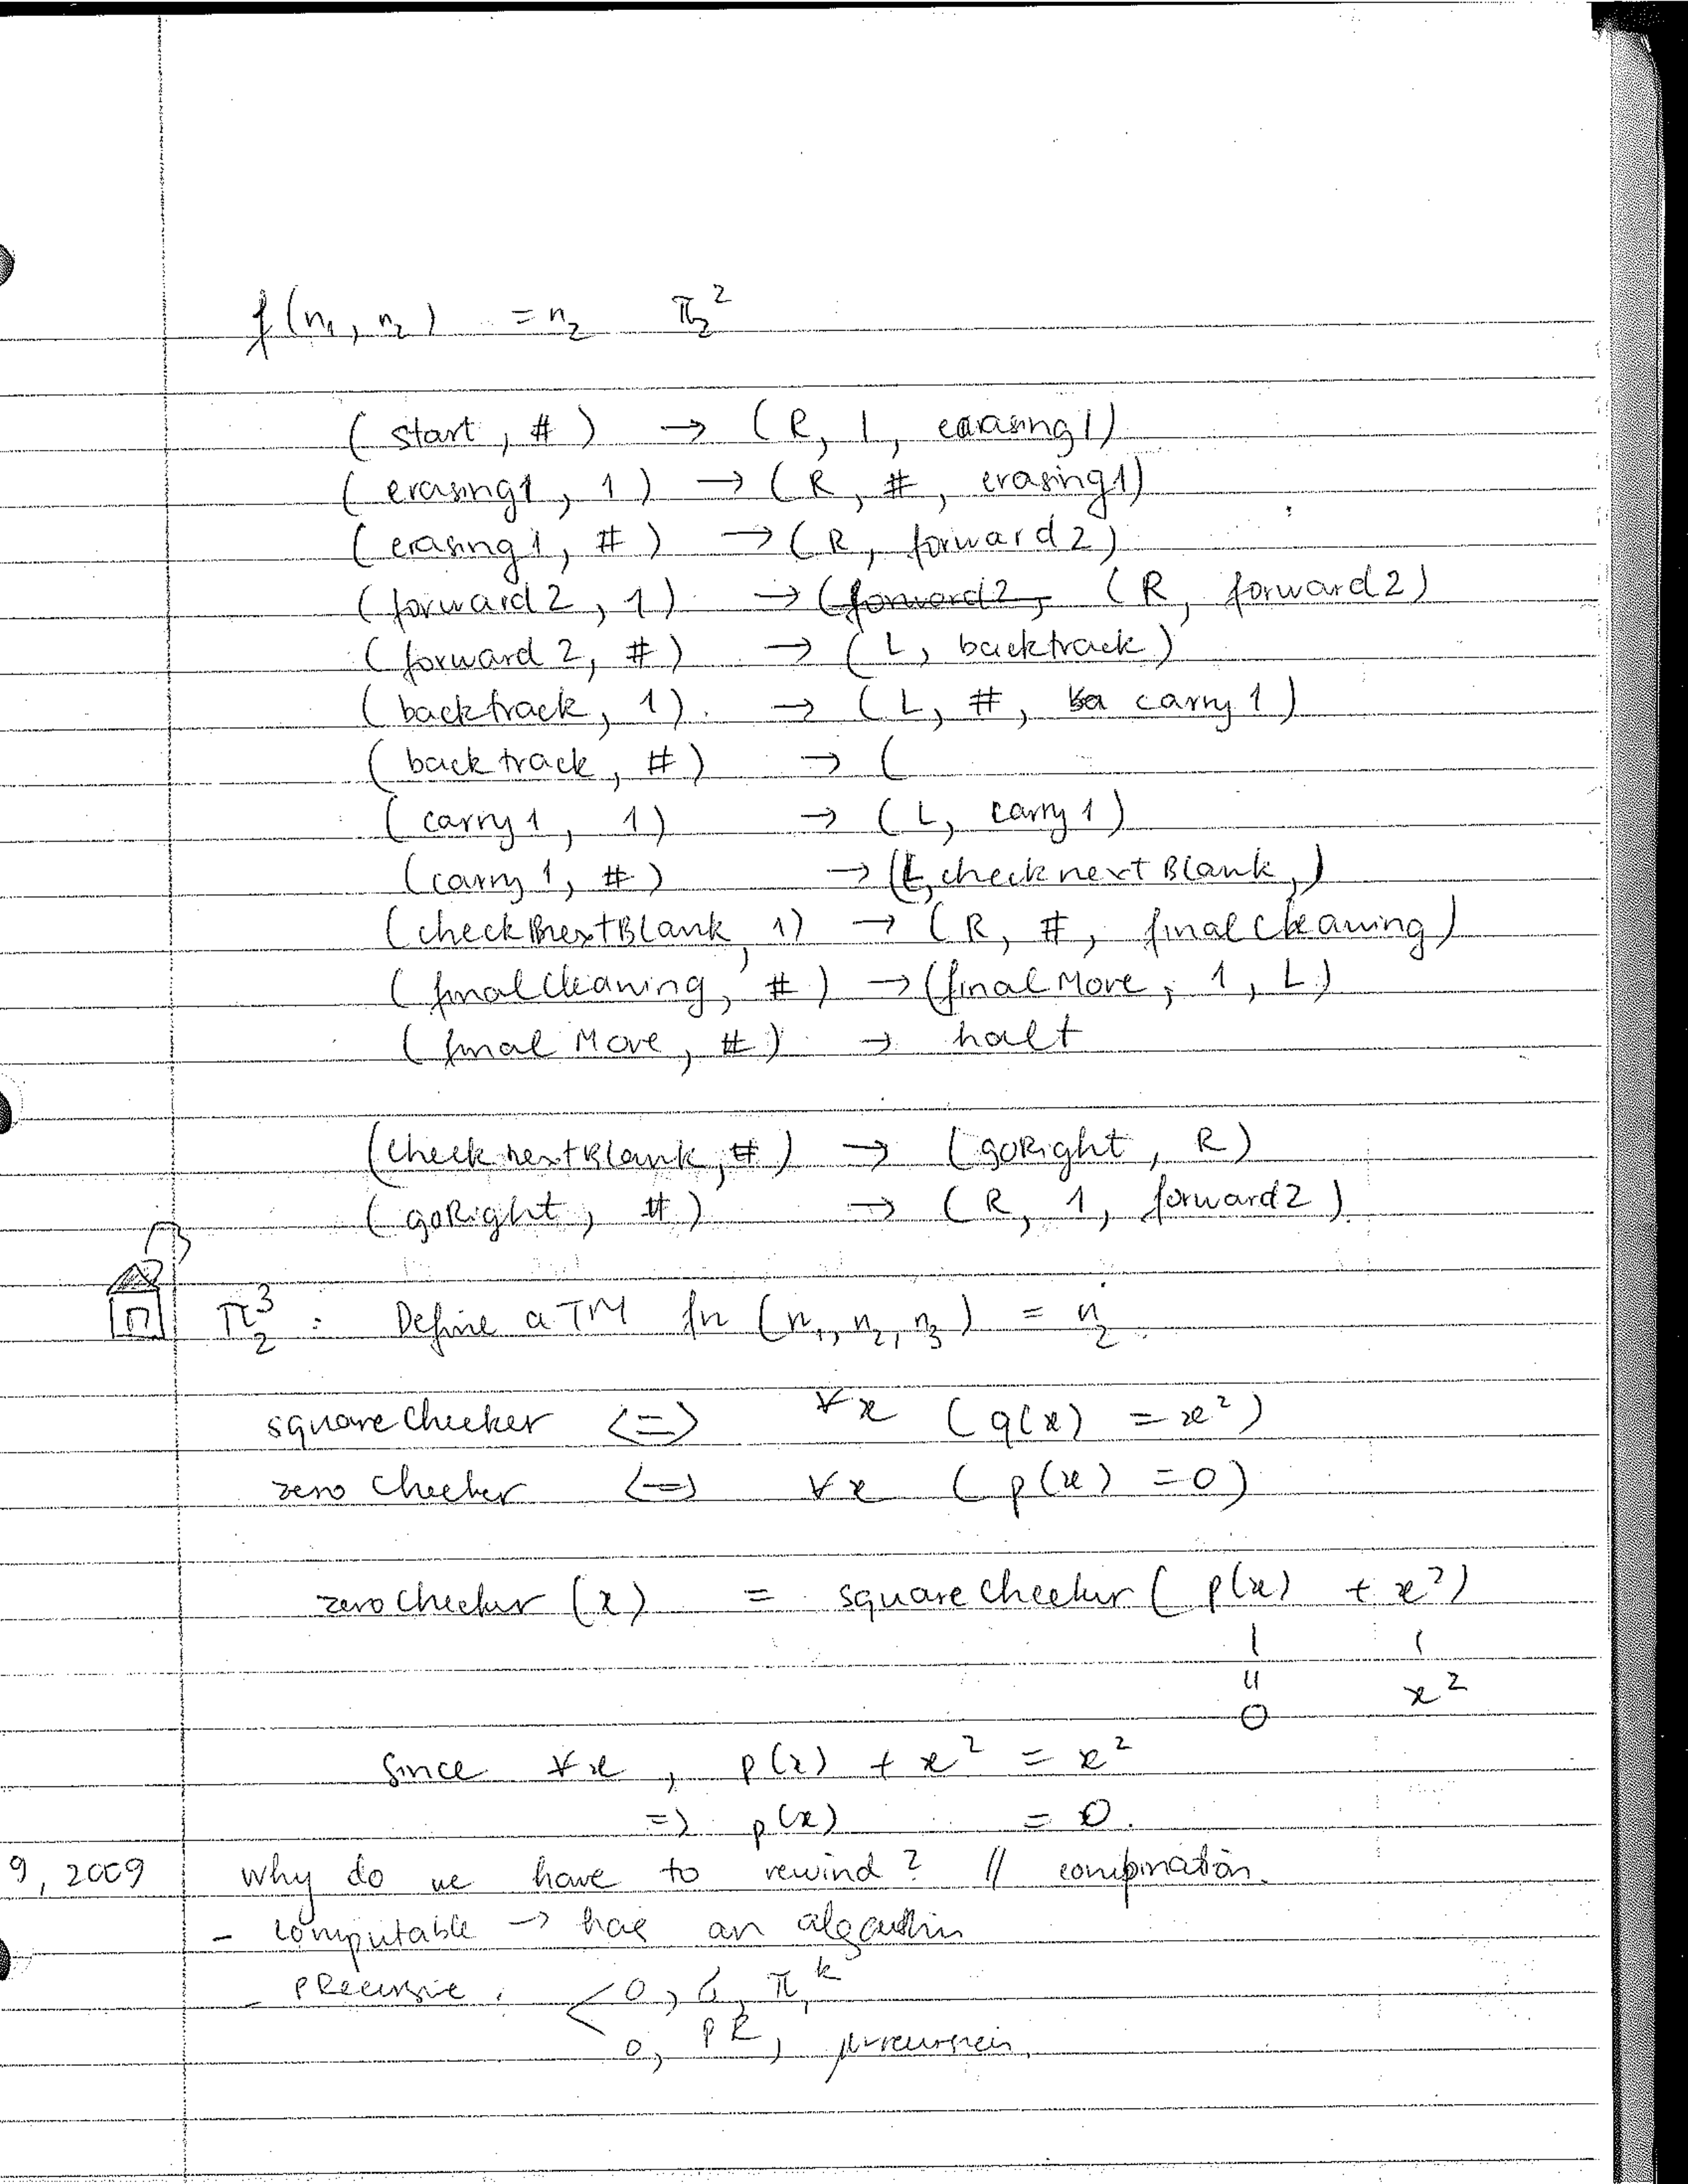 f(n₁, n₂) = n₂ π₂²
(start, #) → (R, 1, erasing1)
(erasing1, 1) → (R, #, erasing1)
(erasing1, #) → (R, forward2)
(forward2, 1) → (forward2, (R, forward2)
(forward2, #) → (L, backtrack)
(backtrack, 1) → (L, #, ba carry1)
(backtrack, #) → (
(carry1, 1) → (L, carry1)
(carry1, #) → (L, checknextBlank,)
(checknextBlank, 1) → (R, #, finalCleaning)
(finalCleaning, #) → (finalMove, 1, L)
(finalMove, #) → halt
(checknextBlank, #) → (goRight, R)
(goRight, #) → (R, 1, forward2)
π₂³ : Define a TM fn (n₁, n₂, n₃) = n₂
squarechecker <=> ∀x (q(x) = x²)
zerochecker <=> ∀x (p(x) = 0)
zerochecker(x) = squarechecker(p(x) + x²)
|| x²
0
since ∀x, p(x) + x² = x²
=> p(x) = 0.
9, 2009 why do we have to rewind? // combination.
- computable → has an algorithm
- μRecursive : < 0, σ, πᵢᵏ
o, PR, μ-recursion.